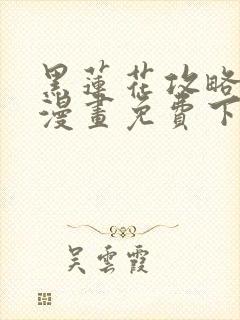 黑蓮花攻略
漫畫免費下
吳雲霞